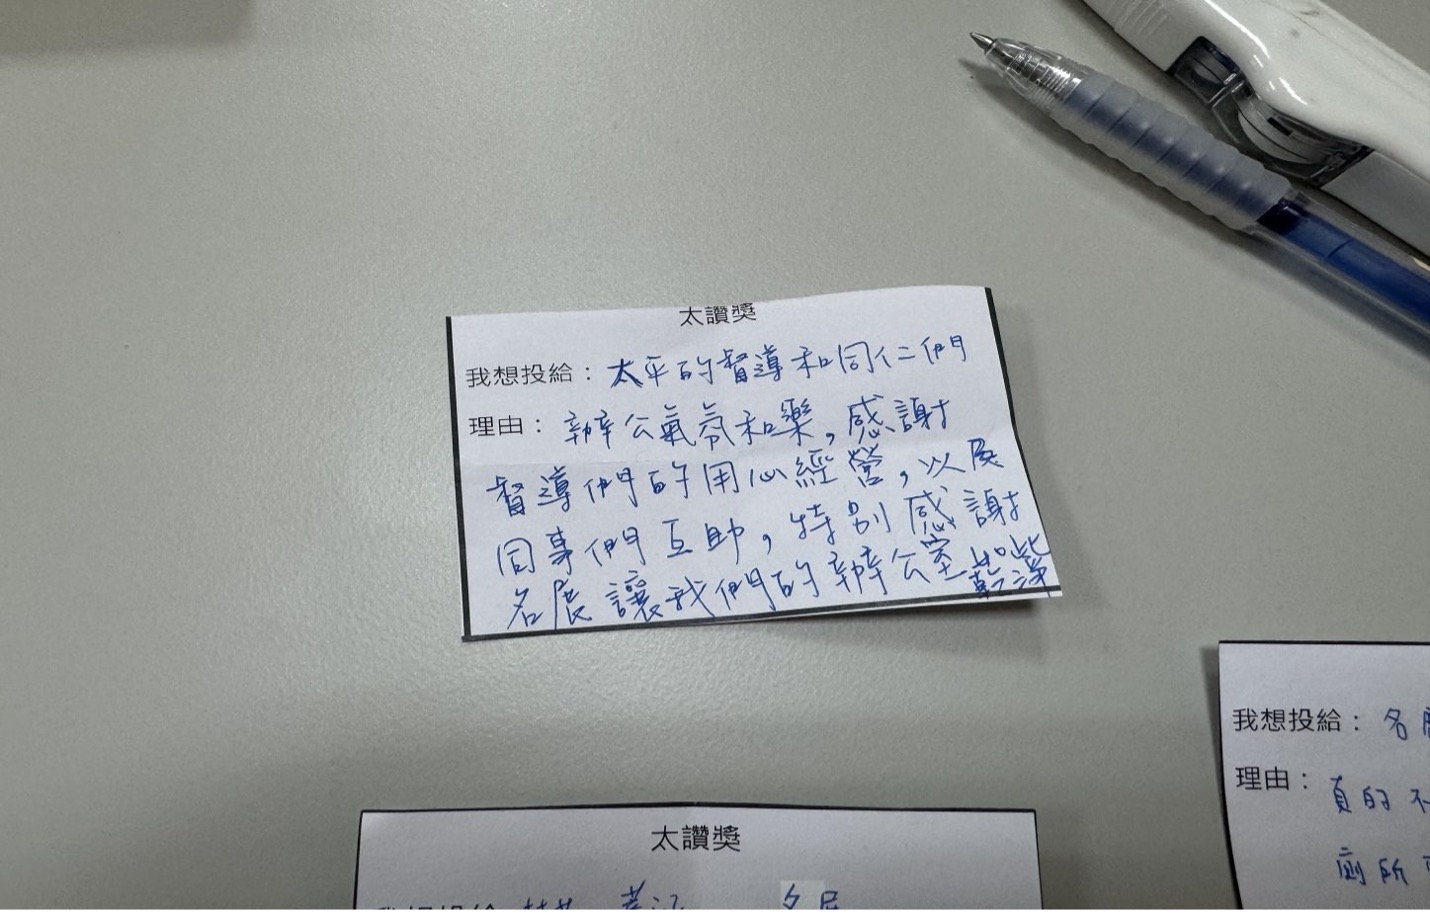 太讚獎
我想投給：太平的督導和同仁們
理由：辦公氣氛和樂，感謝
督導們的用心經營，以及
同事們互助，特別感謝
名展讓我們的辦公室乾淨
我想投給：名
理由：真的不
廁所
太讚獎
我想投給